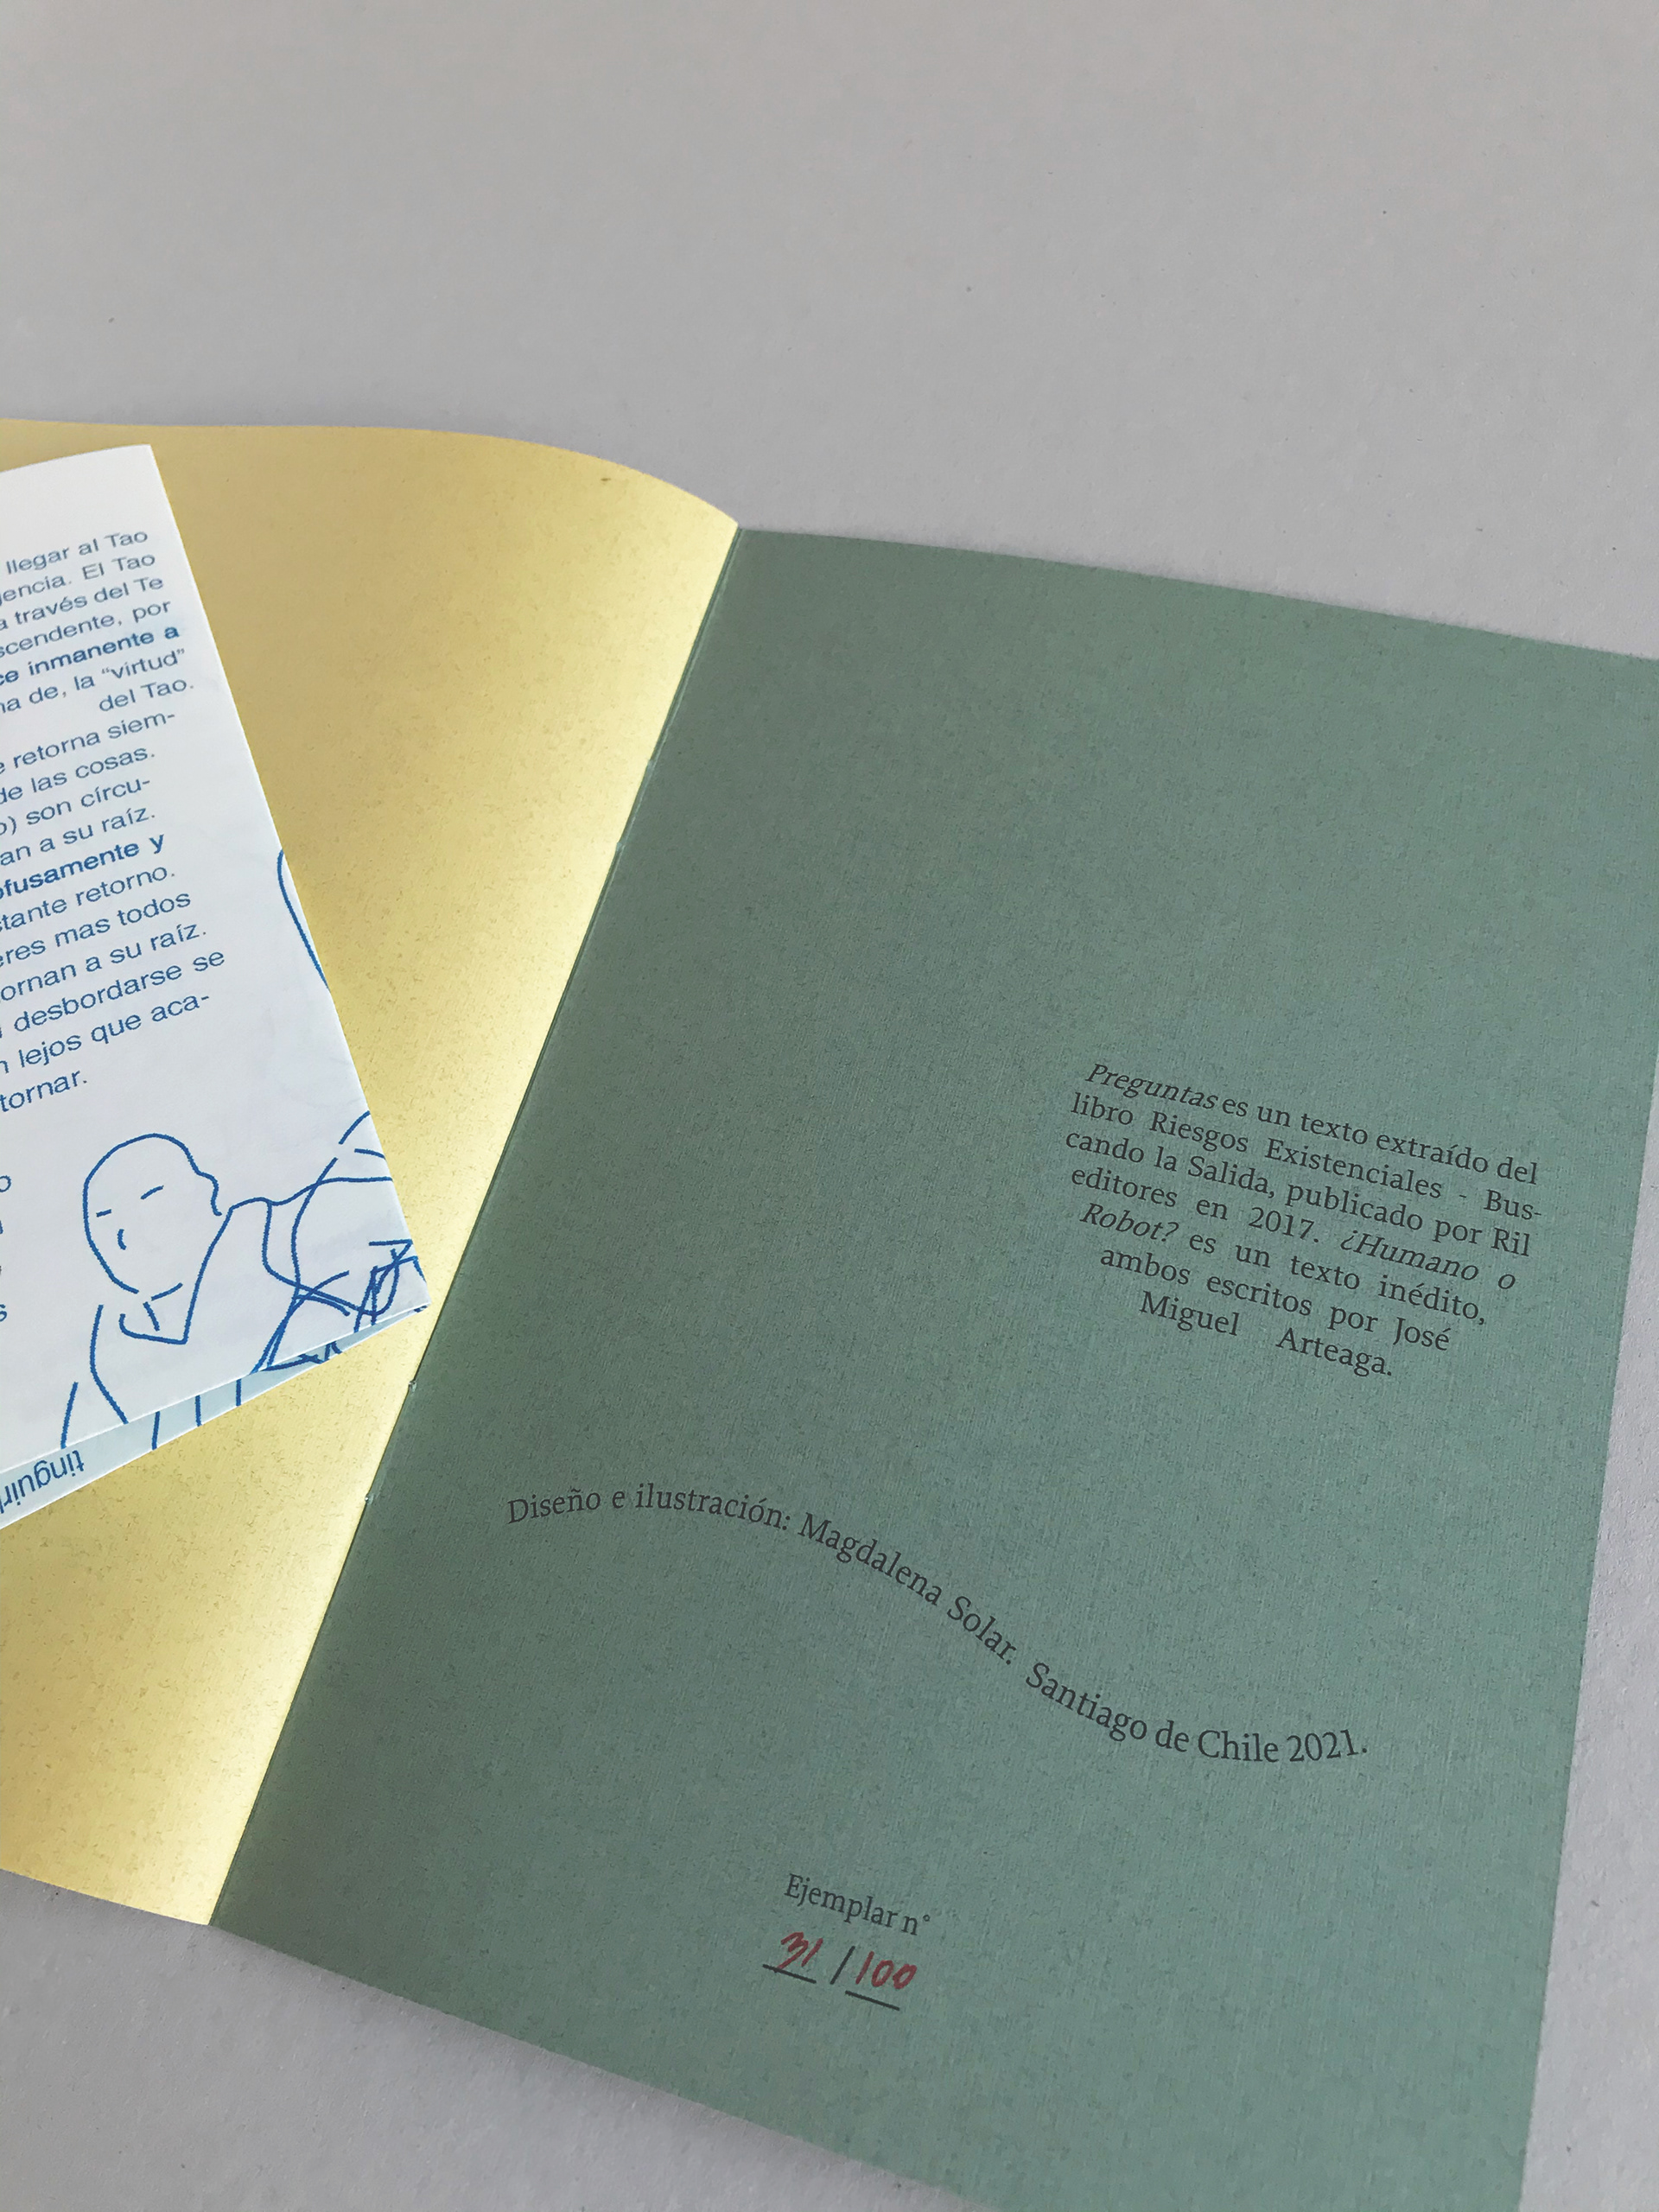 llegar al Tao
El Tao
a través del Te
por
inmanente a
de, la “virtud”
del Tao.
retorna siem-
de las cosas.
son círcu-
a su raíz.
y
retorno.
mas todos
a su raíz.
desbordarse se
lejos que aca-
Preguntas es un texto extraído del
libro Riesgos Existenciales - Bus-
cando la Salida, publicado por Ril
editores en 2017. ¿Humano o
Robot? es un texto inédito,
ambos escritos por José
Miguel Arteaga.
Diseño e ilustración: Magdalena Solar. Santiago de Chile 2021.
Ejemplar n°
31 / 100